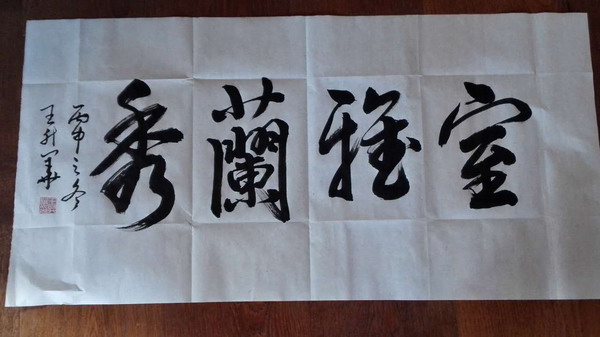 室雅蘭秀
丙申之冬
王升華